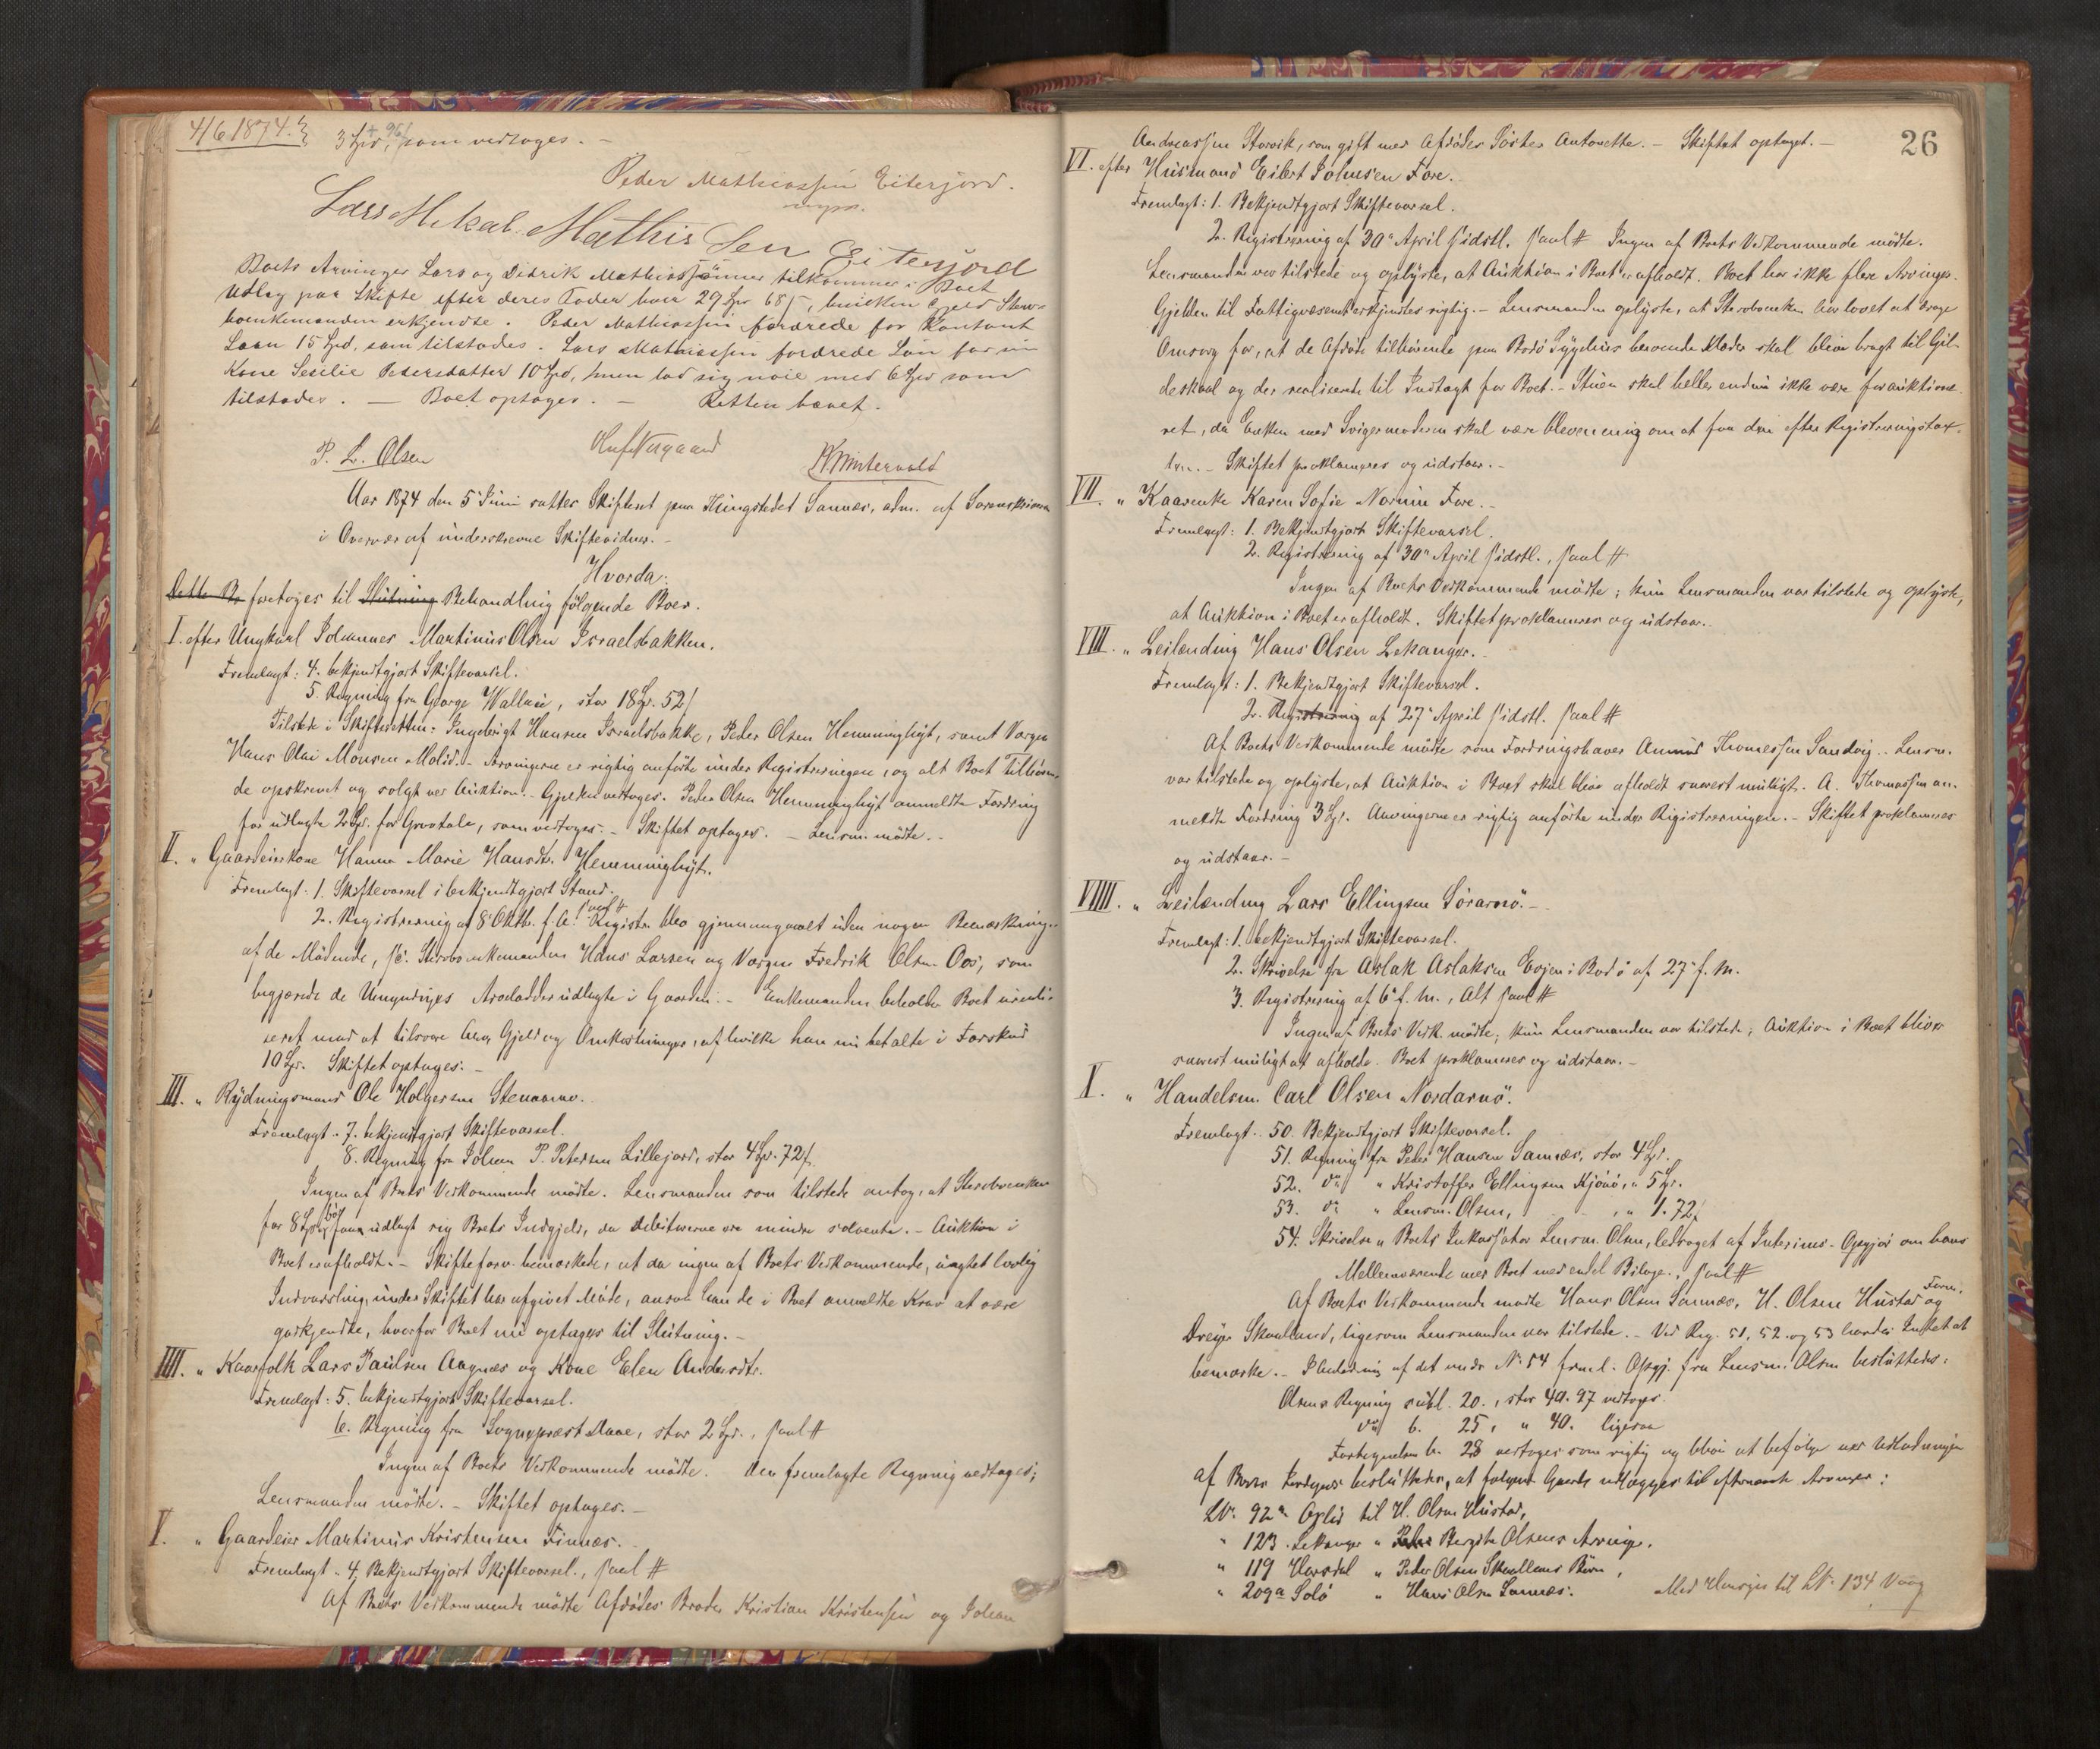 4/6 1874.
3 Spd, som vedtoges. -
Peder Mathiassen Eiterjord.
Lars Mekal Mathis Sen Eiterjord
Boets Arvinger Lars og Didrik Mathiassønner tilkommer i Boet
Udlæg paa Skifte efter deres Fader hver 29 Spd 68 β, hvilken Gjeld Sterv-
boenkemanden erkjendte. Peder Mathiassen fordrede for Kontant
Laan 15 Spd, som tilstodes. Lars Mathiassen fordrede Løn for sin
Kone Sesilie Pedersdatter 10 Spd, men lod sig nøie med 6 Spd som
tilstodes. — Boet optages. — Retten hævet.
P. L. Olsen
Aar 1874 den 5 Juni sattes Skifteret paa Thingstedet Sannæs, adm. af Sorenskriveren
i Overvær af underskrevne Skiftevidner. -
Hvorda:
Dette Bo foretoges til Slutning Behandling følgende Boer.
I. efter Ungkarl Johannes Martinus Olsen Israelsbakken.
Fremlagt: 4. bekjendtgjort Skiftevarsel.
5. Regning fra George Wallace, stor 18 Spd. 52 β
Tilstede i Skifteretten: Ingebrigt Hansen Israelsbakke, Peder Olsen Hemminghyt, samt Værgen
Hans Olai Monsen Molid. - Arvingerne er rigtig anførte under Registreringen, og alt Boet Tilhøren-
de opskrevet og solgt ved Auktion. - Gjelden vedtoges. Peder Olsen Hemminghyt anmeldte Fordring
for udlagte 2 Spd. for Gravøl, som vedtoges. - Skiftet optages. - Lensm. mødte. -
II. " Gaardeierskone Hanna Marie Hansdtr. Hemminghyt.
Fremlagt: 1. Skiftevarsel i bekjendtgjort Stand.
2. Registrering af 8 Oktbr. f. A. saal # Registr. blev gjennemgaaet uden nogen Bemærkning
af de Mødende, sc. Stervboenkemanden Hans Larsen og Værgen Fredrik Olsen Oos, som
begjærede de Umyndiges Arvelodder udlagte i Gaarden. - Enkemanden beholder Boet ureali-
seret mod at tilsvare dets Gjeld og Omkostninger, af hvilke han nu betalte i Forskud
10 Spd. Skiftet optages. -
III. " Rydningsmand Ole Holgersen Stenaamo.
Fremlagt: 7. bekjendtgjort Skiftevarsel.
8. Regning fra Johan P. Petersen Lillejord, stor 4 Spd. 72 β
Ingen af Boets Vedkommende mødte. Lensmanden som tilstede antog, at Stervboenken
for 8 Spd bør faaa udlagt sig Boets Indgjeld, da Debitorerne ere mindre solvente. - Auktion i
Boet er afholdt. - Skifteforv. bemærkede, at da ingen af Boets Vedkommende, uagtet lovlig
Indvarsling, under Skiftet har afgivet Møde, ansaa han de i Boet anmeldte Krav at være
godkjendte, hvorfor Boet nu optages til Slutning. -
IIII. " Kaarfolk Lars Paulsen Aagnæs og Kone Elen Andersdtr.
Fremlagt: 5. bekjendtgjort Skiftevarsel.
6. Regning fra Sognepræst Daae, stor 2 Spd., saal #
Ingen af Boets Vedkommende mødte. Den fremlagte Regning vedtoges;
Lensmanden mødte. - Skiftet optages. -
V. " Gaardeier Martinus Kristensen Finnæs.
Fremlagt: 4. Bekjendtgjort Skiftevarsel, saal #
Af Boets Vedkommende mødte Afdødes Broder Kristian Kristensen og Johan
26
Andreassen Storvik, som gift med Afdødes Søster Antonette. - Skiftet optaget. -
VI. efter Husmand Eilert Johnsen Fore.
Fremlagt: 1. Bekjendtgjort Skiftevarsel.
2. Registrering af 30 April sidstl. saal # Ingen af Boets Vedkommende mødte.
Lensmanden var tilstede og oplyste, at Auktion i Boet er afholdt. Boet har ikke flere Arvinger.
Gjelden til Fattigvæsenet erkjendtes rigtig. - Lensmanden oplyste, at Stervboenken har lovet at drage
Omsorg for, at de Afdøde tilhørende paa Bodø Sygehus beroende Klæder skal blive bragt til Gil-
deskaal og der realiserede til Indtægt for Boet. - Stuen skal heller endnu ikke være forauktione-
ret, da Enken med Svigermoderen skal være bleven enig om at faa den efter Registreringstax-
ten. - Skiftet proklameres og udstaar. -
VII. " Kaarenke Karen Sofie Normin Fore.
Fremlagt: 1. Bekjendtgjort Skiftevarsel.
2. Registrering af 30 April sidstl., saal #
Ingen af Boets Vedkommende mødte; kun Lensmanden var tilstede og oplyste,
at Auktion i Boet er afholdt. Skiftet proklameres og udstaar.
VIII. " Leilænding Hans Olsen Lekanger.
Fremlagt: 1. Bekjendtgjort Skiftevarsel.
2. Registrering af 27 April sidstl. saal #
Af Boets Vedkommende mødte som Fordringshaver Amund Thomessen Sandvig. Lensm.
var tilstede og oplyste, at Auktion i Boet skal blive afholdt snarest muligt. A. Thomassen an-
meldte Fordring 3 Spd. Arvingerne er rigtig anførte under Registreringen. - Skiftet proklameres
og udstaar. -
VIIII. " Leilænding Lars Ellingsen Sørarnø. -
Fremlagt: 1. bekjendtgjort Skiftevarsel.
2. Skrivelse fra Aslak Aslaksen Evjen i Bodø af 27 f. M.
3. Registrering af 6 f. M., Alt saal #
Ingen af Boets Vedk. mødte; kun Lensmanden var tilstede; Auktion i Boet bliver
snarest muligt at afholde. Boet proklameres og udstaar. -
X. " Handelsm. Carl Olsen Nordarnø.
Fremlagt: 50. Bekjendtgjort Skiftevarsel.
51. Regning fra Peder Hansen Sannæs, stor 4 Spd.
52. do " Kristoffer Ellingsen Kjønø, " 5 Spd.
53. do " Lensm. Olsen, " 1. 72 β
54. Skrivelse " Boets Inkassator Lensm. Olsen, ledsaget af Interims-Opgjør om hans
Mellemværende med Boet med endel Bilage., saal #
Af Boets Vedkommende mødte Hans Olsen Sannæs, H. Olsen Hustad og Form.
Dreyer Skaalland, ligesom Lensmanden var tilstede. - Ved Reg. 51, 52 og 53 havdes Intet at
bemærke. - I Anledning af det under No 54 freml. Opgj. fra Lensm. Olsen besluttedes:
Olsens Regning subl. 20., stor 40. 97 vedtoges.
do b. 25, " 40. ligesaa
Fortegnelsen b. 28 vedtoges som rigtig og bliver at befølge ved Udlodningen
Af Boets Jordegods besluttedes, at følgende Gaarde udlægges til efternævnte Arvinger:
LNr. 92a Oplid til H. Olsen Hustad,
" 123 Lekanger " Bergithe Olsens Arvinger.
" 119 Horsdal " Peder Olsen Skaallands Børn,
" 209a Solø " Hans Olsen Sannæs. Med Hensyn til LNr. 134 Vaag